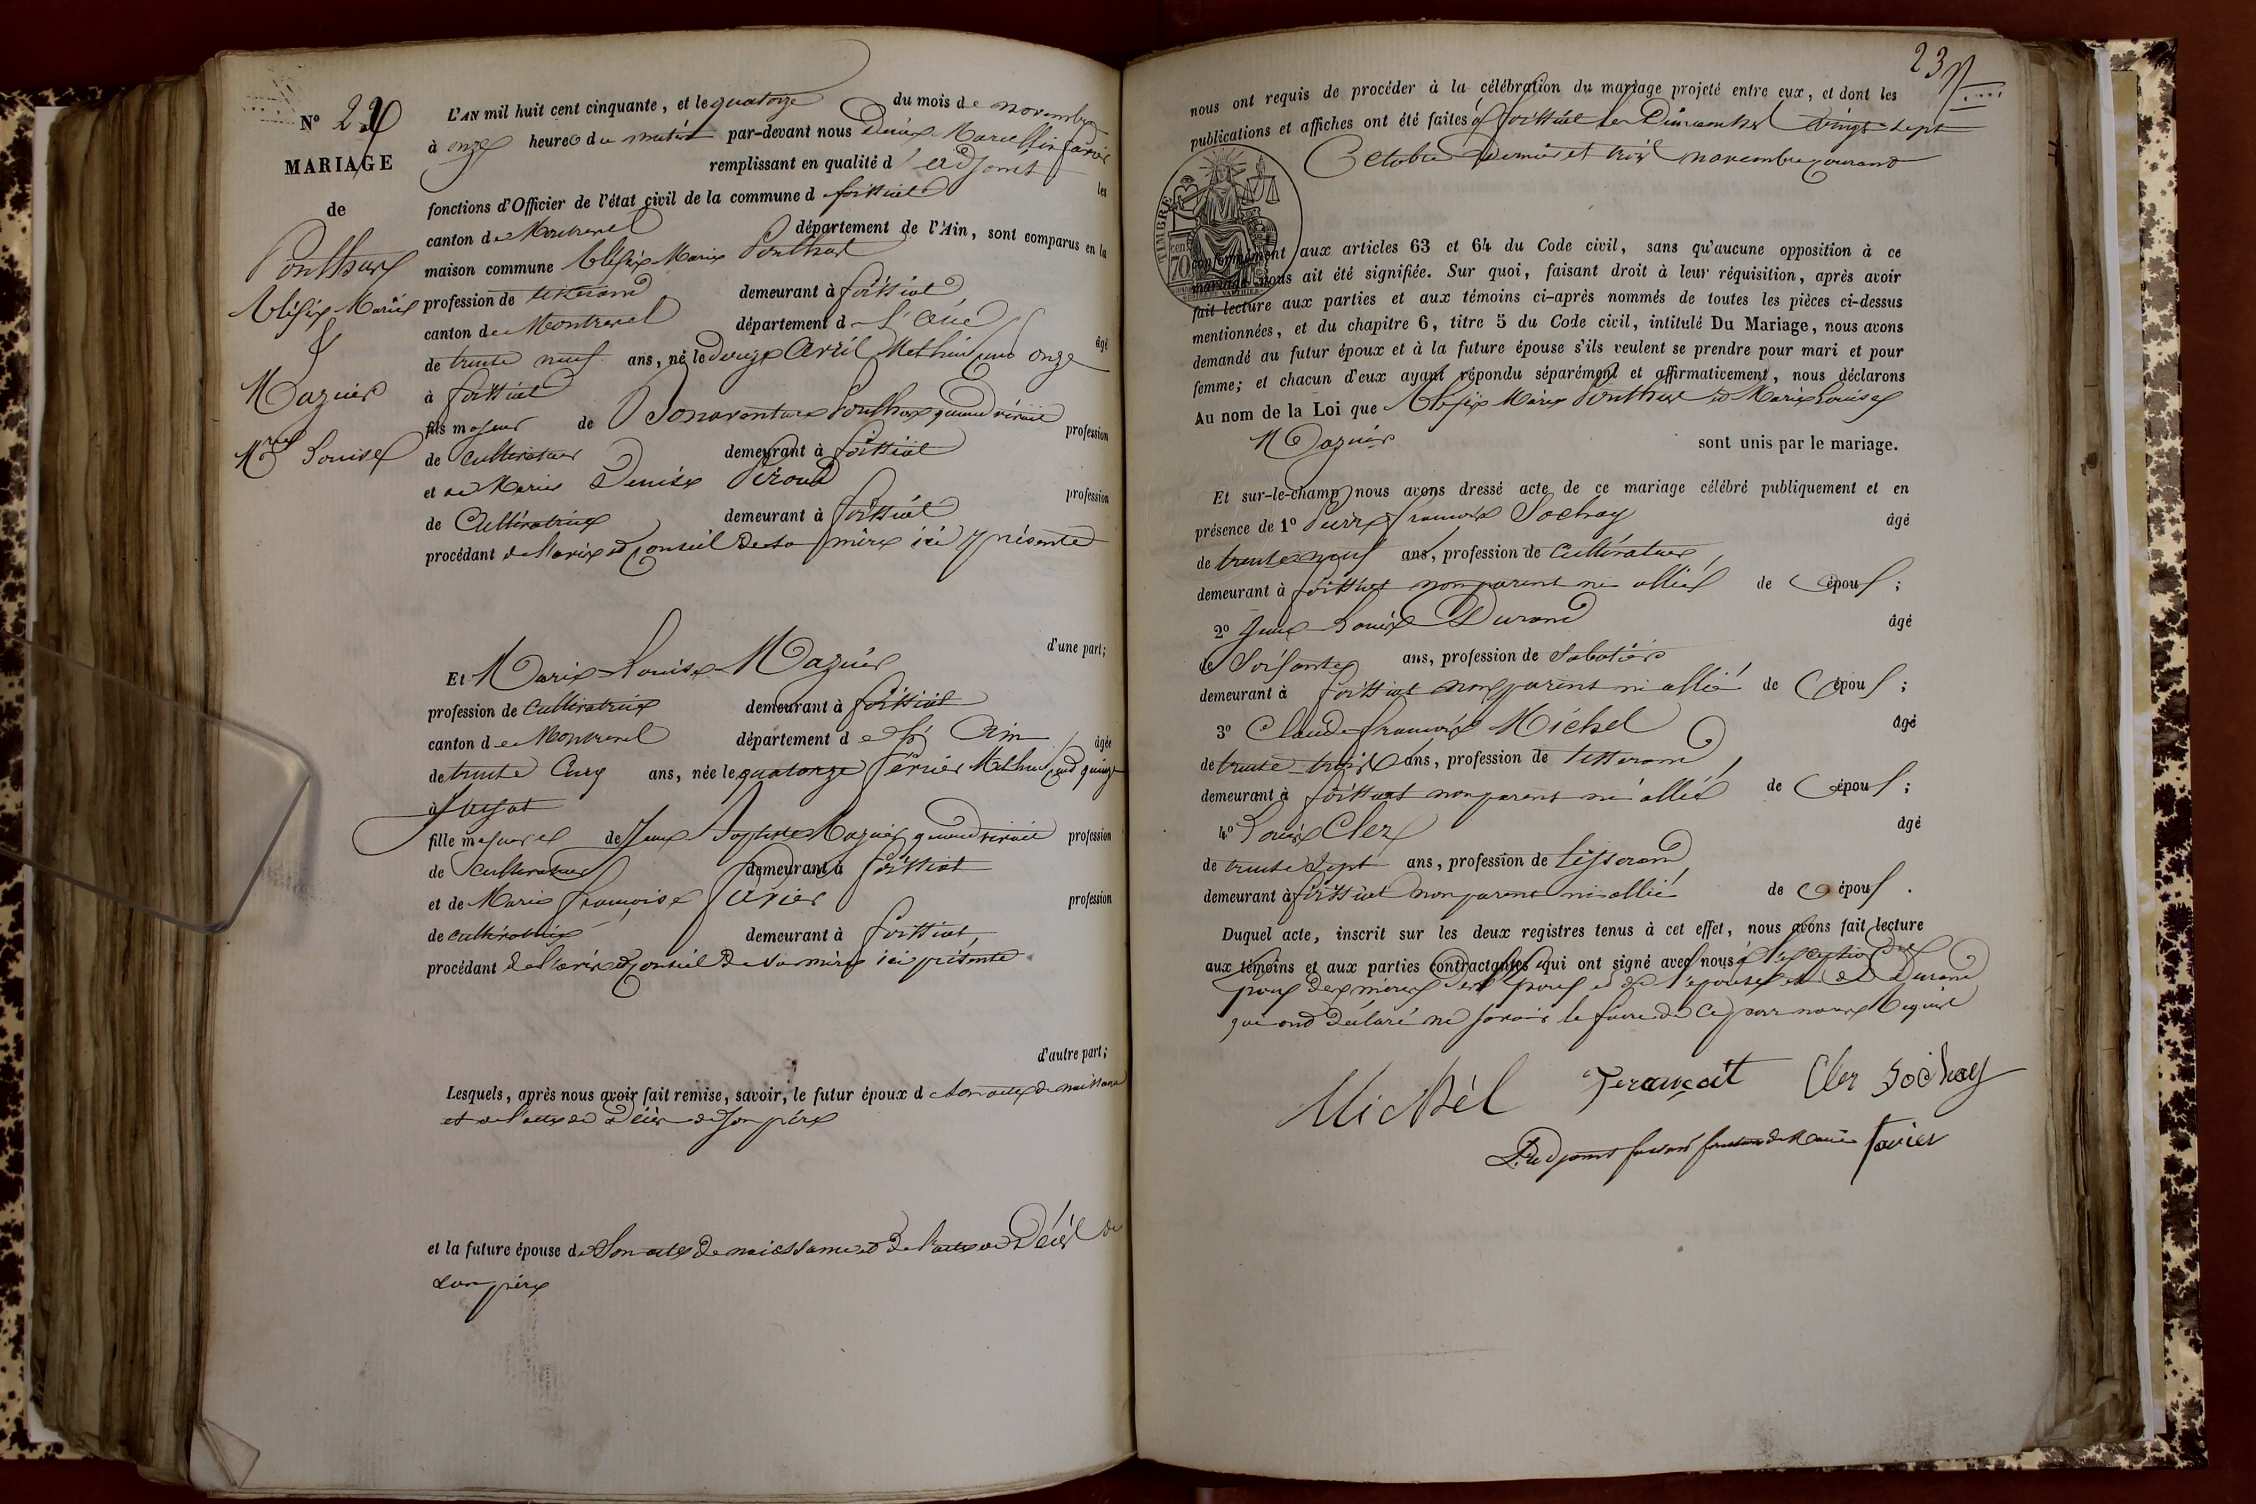 N° 22
MARIAGE
de
Ponthus
Alexix Marie
&
Mazuir
Mie Louise
L'AN mil huit cent cinquante, et le quatorze du mois de novembre
à onze heures du matin par-devant nous Denix Marcellin favier
remplissant en qualité d'adjoint les
fonctions d'Officier de l'état civil de la commune de foissiat
canton de Montrevel département de l'Ain, sont comparus en la
maison commune Alexix Marie Ponthus
profession de tisserand demeurant à foissiat
canton de Montrevel département de l'Ain âgé
de trente neuf ans, né le douze Avril Mil huit cent onze
à foissiat
fils majeur de Bonaventure Ponthus quand vivait profession
de Cultivateur demeurant à foissiat
et de Marie Denise Péroud profession
de Cultivatrice demeurant à foissiat
procédant de l'avis et Conseil de sa mère ici présente
d'une part;
Et Marie Louise Mazuir
profession de cultivatrice demeurant à foissiat
canton de Montrevel département de l'Ain âgée
de trente Cinq ans, née le quatorze février Mil huit cent quinze
à
fille majeure de Jean Baptiste Mazuir quand vivait profession
de cultivateur demeurant à foissiat
et de Marie françoise favier profession
de cultivatrice demeurant à foissiat
procédant de l'avis et Conseil de sa mère ici présente
d'autre part;
Lesquels, après nous avoir fait remise, savoir, le futur époux de son acte de naissance
et de l'acte de Décès de son père
et la future épouse de Son acte de naissance et de l'acte de Décès de
son père
23
nous ont requis de procéder à la célébration du mariage projeté entre eux, et dont les
publications et affiches ont été faites à foissiat les Dimanches vingt sept
Octobre dernier et trois novembre courant
TIMBRE
70 cent
conformément aux articles 63 et 64 du Code civil, sans qu'aucune opposition à ce
mariage nous ait été signifiée. Sur quoi, faisant droit à leur réquisition, après avoir
fait lecture aux parties et aux témoins ci-après nommés de toutes les pièces ci-dessus
mentionnées, et du chapitre 6, titre 5 du Code civil, intitulé Du Mariage, nous avons
demandé au futur époux et à la future épouse s'ils veulent se prendre pour mari et pour
femme; et chacun d'eux ayant répondu séparément et affirmativement, nous déclarons
Au nom de la Loi que Alexix Marie Ponthus et Marie Louise
Mazuir sont unis par le mariage.
Et sur-le-champ nous avons dressé acte de ce mariage célébré publiquement et en
présence de 1° Pierre françois Sochay âgé
de trente neuf ans, profession de cultivateur
demeurant à foissiat non parent ni allié de époux;
2° Jean Louis Durand âgé
de Soixante ans, profession de Sabotier
demeurant à foissiat non parent ni allié de époux;
3° Claude françois Michel âgé
de trente trois ans, profession de tisserand
demeurant à foissiat non parent ni allié de époux;
4° Louis Cler âgé
de trente Sept ans, profession de tisserand
demeurant à foissiat non parent ni allié de époux.
Duquel acte, inscrit sur les deux registres tenus à cet effet, nous avons fait lecture
aux témoins et aux parties contractantes qui ont signé avec nous à l'exception des
époux des mères des époux et de l'épouse et de Durand
qui ont déclaré ne savoir le faire de ce par nous Requis
Michel françois Cler Sochay
L'adjoint faisant fonction de Maire favier